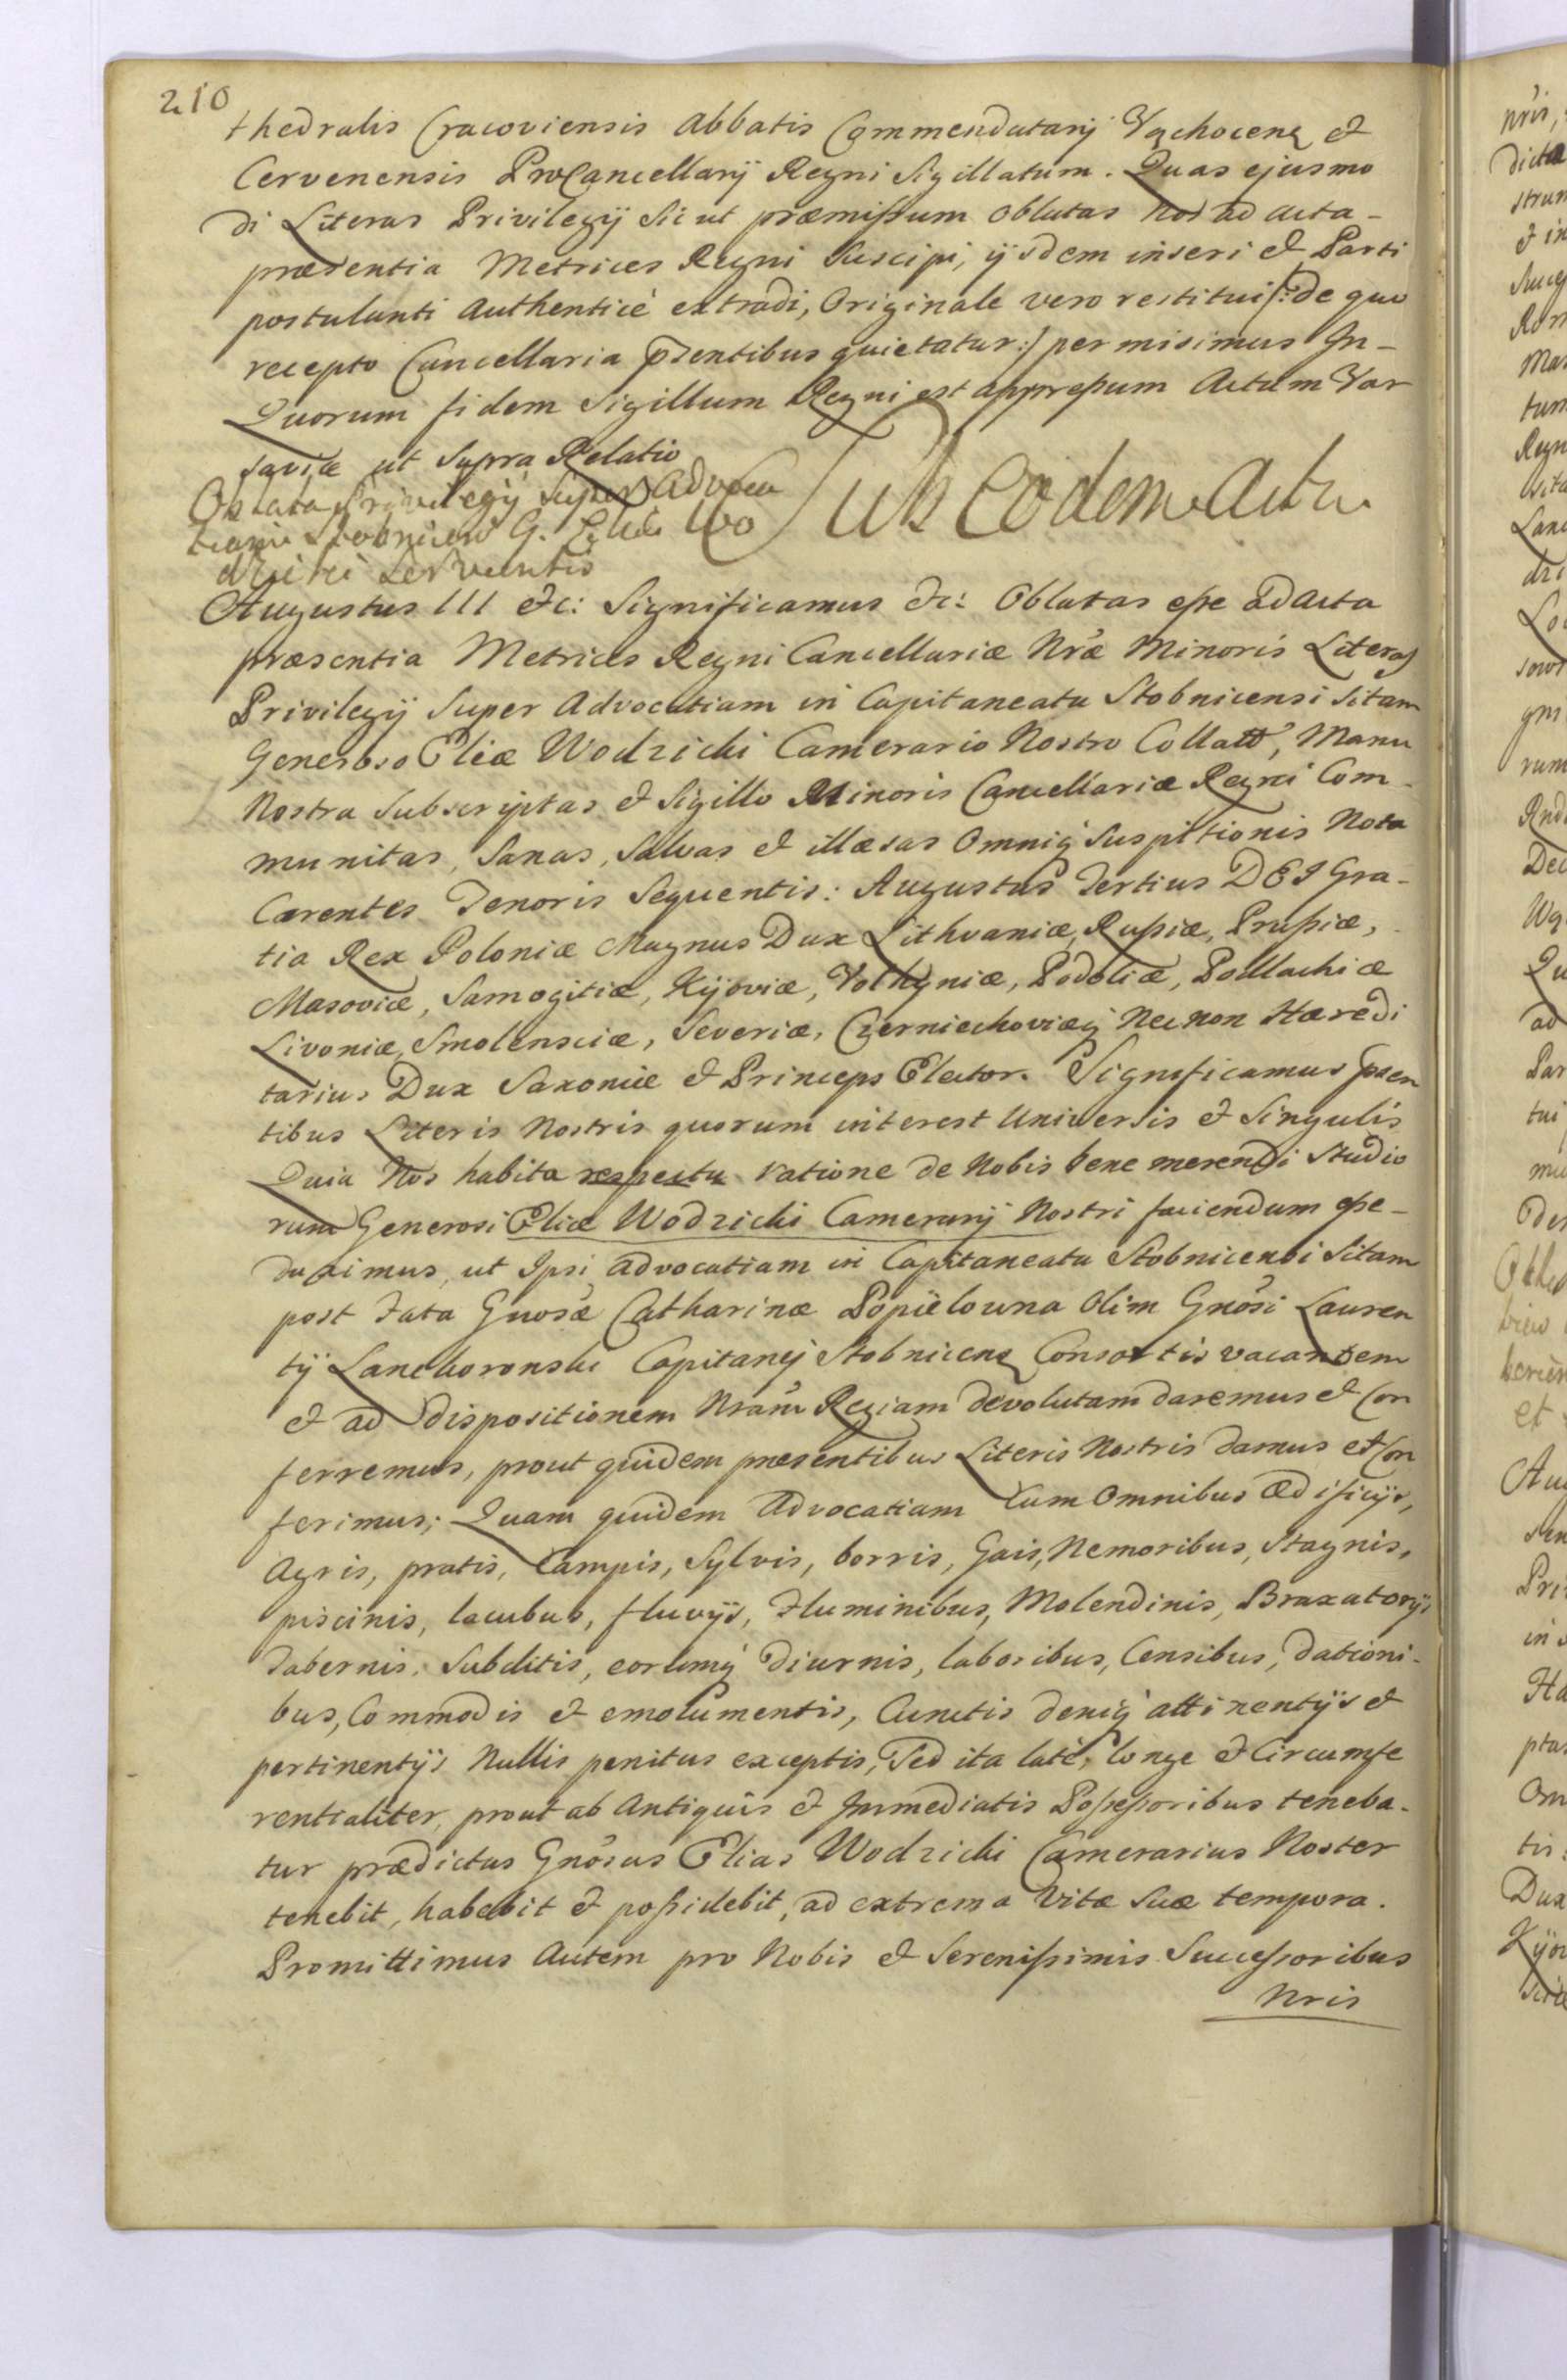 210
thedralis Cracoviensis Abbatis Commendatarij Vąchocenꝭ et
Cervenensis ProCancellarij Regni Sigillatum. Quas ejusmo
di Literas Privilegij Sicut præmissum oblatas Nos ad acta-
præsentia Metrices Regni Suscipi, ijsdem inseri et Parti
postulanti Authenticè extradi, Originale vero restitui /:de quo
recepto Cancellaria pꝛsentibus quietatur:/ permisimus In-
Quorum fidem Sigillum Regni est appressum Actum Var
saviæ ut Supra Relatio
Oblata Privilegij Super Advoca
tiam Stobnicen G. Eliæ Wo
dzicki Servientis
Sub Eodem Actu
Augustus III etc: Significamus etc: Oblatas esse ad Acta
præsentia Metrices Regni Cancellariæ Nræ Minoris Literas
Privilegij Super Advocatiam in Capitaneatu Stobnicensi Sitam
Generoso Eliæ Wodzicki Camerario Nostro Collatt, Manu
Nostra Subscriptas et Sigillo Minoris Cancellariæ Regni Com-
munitas, Sanas, Salvas et illæsas Omniq́ Suspitionis Nota
Carentes Tenoris Sequentis: Augustus Tertius DEI Gra-
tia Rex Poloniæ Magnus Dux Lithvaniæ, Russiæ, Prussiæ,
Masoviæ, Samogitiæ, Kijoviæ, Volhyniæ, Podoliæ, Podlachiæ
Livoniæ, Smolensciæ, Severiæ, Czerniechoviæq́ Necnon Hæredi
tarius Dux Saxoniæ et Princeps Elector. Significamus præsen
tibus Literis Nostris quorum interest Universis et Singulis
Quia Nos habita respectu ratione de Nobis bene merendi Studio
rum Generosi Eliæ Wodzicki Camerarij Nostri faciendum esse-
duximus, ut Ipsi Advocatiam in Capitaneatu Stobnicensi Sitam
post Fata Gnosæ Catharinæ Popielowna Olim Gnosi Lauren
tij Lanckoronski Capitanej Stobnicenꝭ Consortis vacantem
et ad dispositionem Nram Regiam devolutam daremus et Con
ferremus, prout quidem præsentibus Literis Nostris damus et Con
ferimus; Quam quidem Advocatiam Cum Omnibus Ædificijs,
Agris, pratis, Campis, Sylvis, borris, Gais, Nemoribus, Stagnis,
piscinis, lacubus, fluvijs, Fluminibus, Molendinis, Braxatorijs
Tabernis, Subditis, eorumq́ diurnis, laboribus, Censibus, dationi-
bus, Commodis et emolumentis, Cunctis deniq́ attinentijs et
pertinentijs Nullis penitus exceptis, Sed ita latè, longe et Circumfe
rentialiter, prout ab Antiquis et Immediatis Possessoribus teneba-
tur prædictus Gnosus Elias Wodzicki Camerarius Noster
tenebit, habebit et possidebit, ad extrema Vitæ Suæ tempora.
Promittimus Autem pro Nobis et Serenissimis Successoribus
Nris